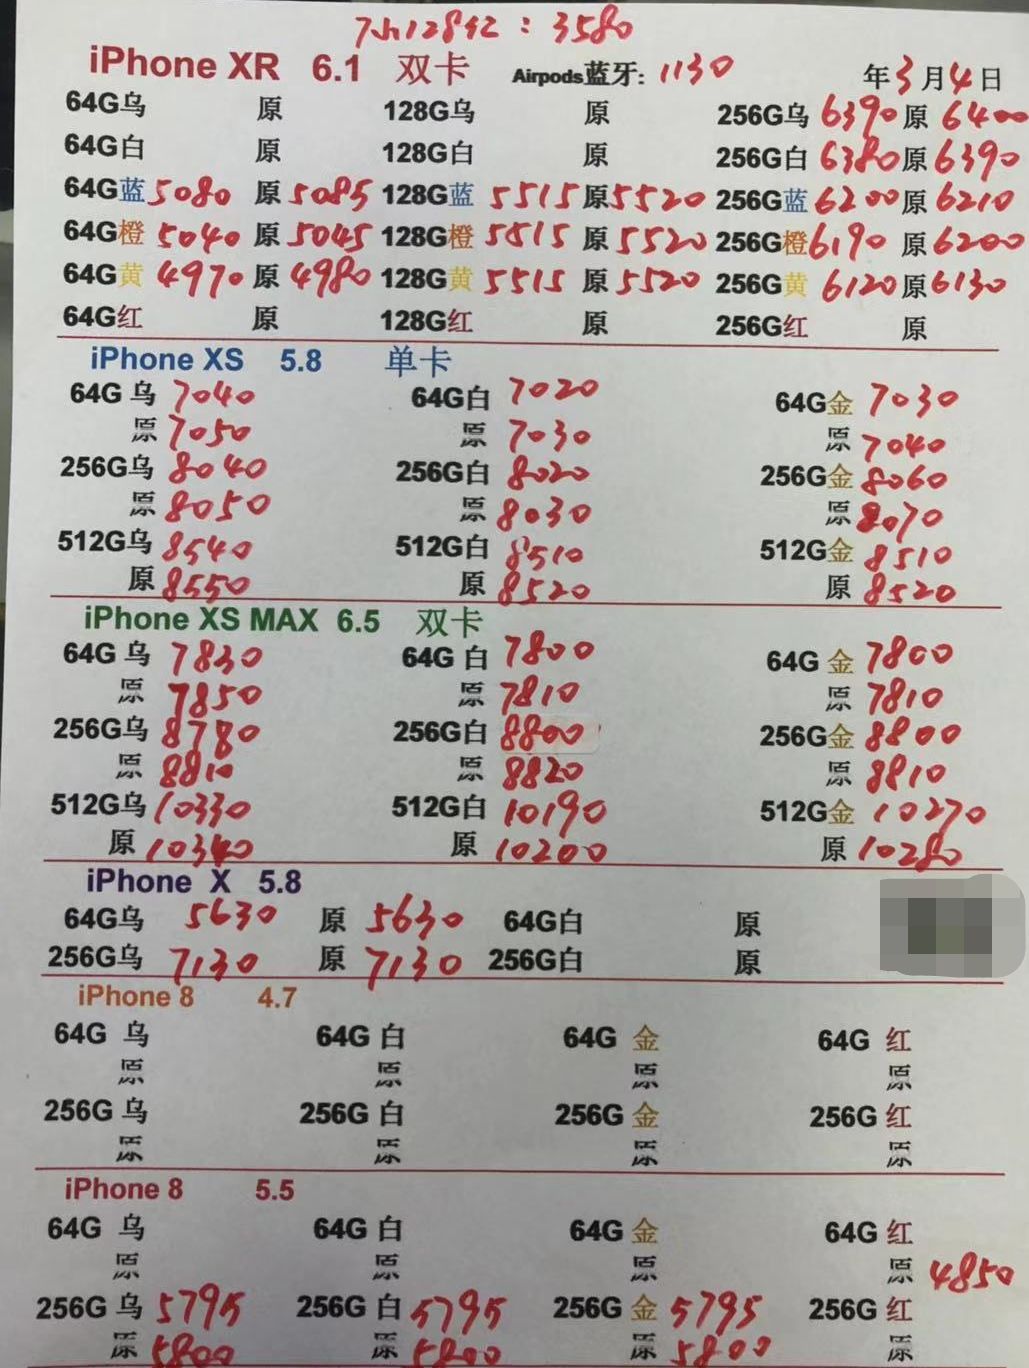 7小128红：3580
iPhone XR 6.1 双卡 Airpods蓝牙: 1130 年3月4日
64G乌 原 128G乌 原 256G乌 6390 原 6400
64G白 原 128G白 原 256G白 6380 原 6390
64G蓝 5080 原 5085 128G蓝 5515 原 5520 256G蓝 6200 原 6210
64G橙 5040 原 5045 128G橙 5515 原 5520 256G橙 6190 原 6200
64G黄 4970 原 4980 128G黄 5515 原 5520 256G黄 6120 原 6130
64G红 原 128G红 原 256G红 原
iPhone XS 5.8 单卡
64G 乌 7040 64G白 7020 64G金 7030
原 7050 原 7030 原 7040
256G乌 8040 256G白 8020 256G金 8060
原 8050 原 8030 原 8070
512G乌 8540 512G白 8510 512G金 8510
原 8550 原 8520 原 8520
iPhone XS MAX 6.5 双卡
64G 乌 7830 64G 白 7800 64G 金 7800
原 7850 原 7810 原 7810
256G乌 8780 256G白 8800 256G金 8800
原 8810 原 8820 原 8810
512G乌 10330 512G白 10190 512G金 10270
原 10340 原 10200 原 10280
iPhone X 5.8
64G乌 5630 原 5630 64G白 原
256G乌 7130 原 7130 256G白 原
iPhone 8 4.7
64G 乌 64G 白 64G 金 64G 红
原 原 原 原
256G 乌 256G 白 256G 金 256G 红
原 原 原 原
iPhone 8 5.5
64G 乌 64G 白 64G 金 64G 红
原 原 原 原 4850
256G 乌 5795 256G 白 5795 256G 金 5795 256G 红
原 5800 原 5800 原 5800 原